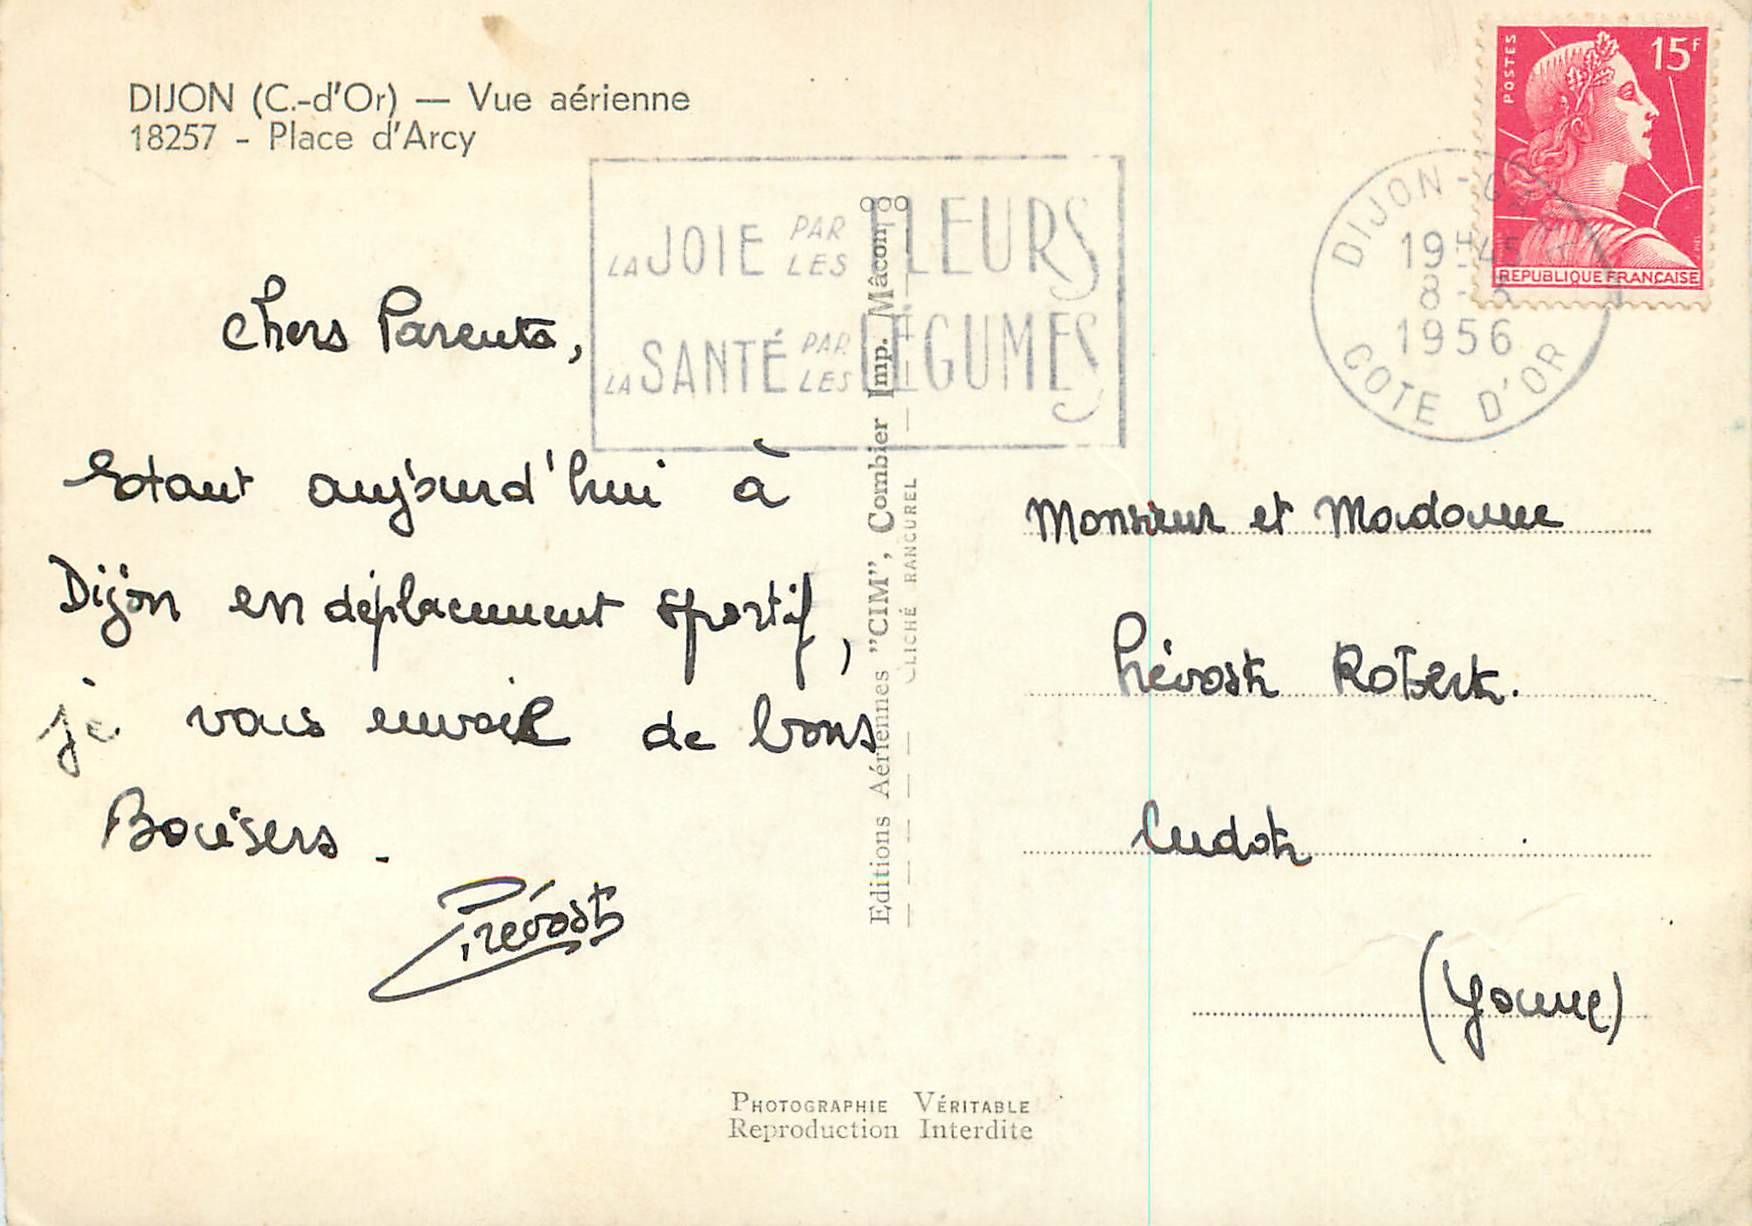 DIJON (C.-d'Or) — Vue aérienne
18257 - Place d'Arcy
LA JOIE PAR LES FLEURS
LA SANTÉ PAR LES LÉGUMES
POSTES
15F
REPUBLIQUE FRANÇAISE
DIJON-GARE
19H45
8-
1956
COTE D'OR
Chers Parents,
Etant aujourd'hui à
Dijon en déplacement sportif,
je vous envoie de bons
Baisers.
Prévost
Editions Aériennes "CIM", Combier Imp. Mâcon
CLICHÉ RANCUREL
Monsieur et Madame
Prévost Robert.
Cudot
(Yonne)
PHOTOGRAPHIE VÉRITABLE
Reproduction Interdite